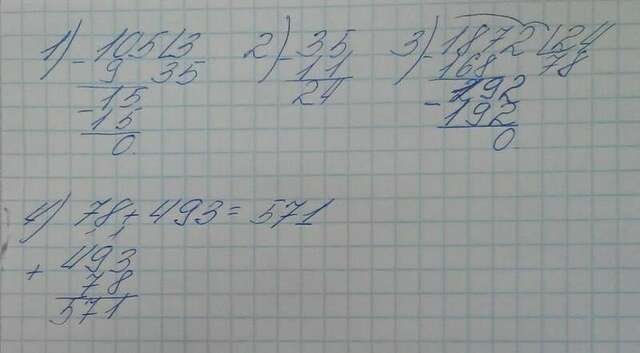 1) - 105 | 3
9 35
- 15
15
0
2) - 35
11
24
3) - 1872 | 24
168 78
- 192
192
0
4) 78 + 493 = 571
+ 493
78
571